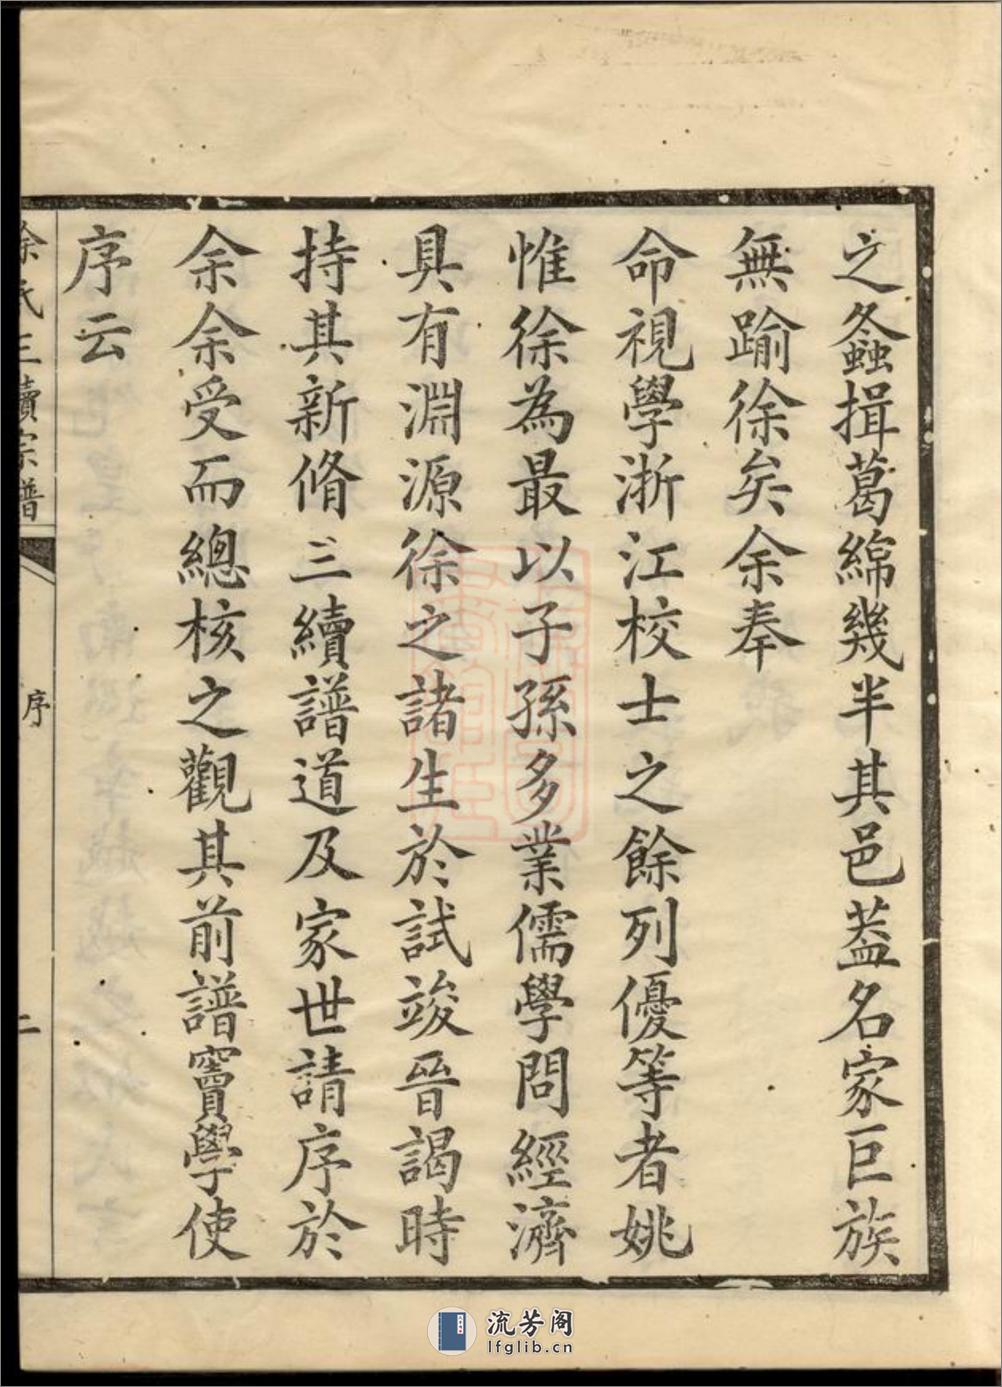 之螽揖葛綿幾半其邑葢名家巨族
無踰徐矣余奉
命視學浙江校士之餘列優等者姚
惟徐為最以子孫多業儒學問經濟
具有淵源徐之諸生於試竣晉謁時
持其新脩三續譜道及家世請序於
余余受而總核之觀其前譜竇學使
序云
徐氏三續宗譜
序
二
流芳阁
lfglib.cn